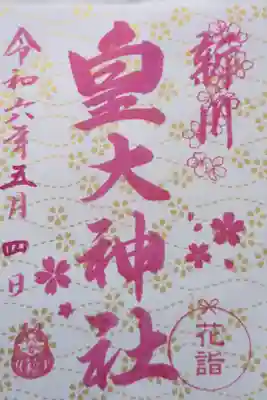 皇大神社
令和六年五月四日
花詣